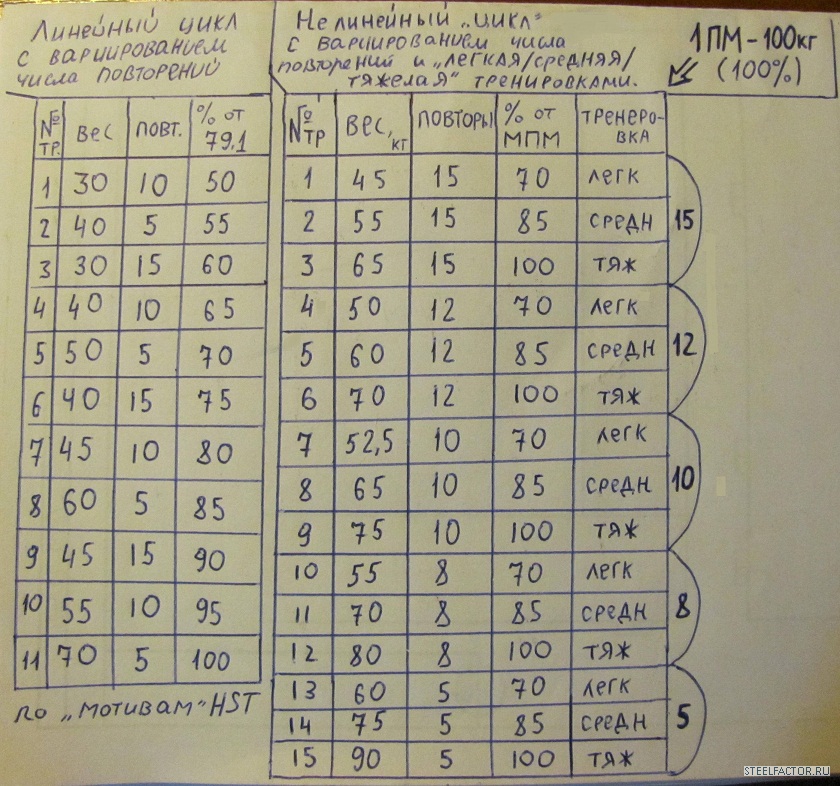 Линейный цикл
с вариированием
числа повторений
№ тр. вес повт. % от 79,1
1 30 10 50
2 40 5 55
3 30 15 60
4 40 10 65
5 50 5 70
6 40 15 75
7 45 10 80
8 60 5 85
9 45 15 90
10 55 10 95
11 70 5 100
по „мотивам" HST
Нелинейный „цикл"
с вариированием числа
повторений и „легкая/средняя/
тяжелая" тренировками.
1ПМ – 100кг
(100%)
№ тр вес, кг повторы % от МПМ тренеровка
1 45 15 70 легк
2 55 15 85 средн 15
3 65 15 100 тяж
4 50 12 70 легк
5 60 12 85 средн 12
6 70 12 100 тяж
7 52,5 10 70 легк
8 65 10 85 средн 10
9 75 10 100 тяж
10 55 8 70 легк
11 70 8 85 средн 8
12 80 8 100 тяж
13 60 5 70 легк
14 75 5 85 средн 5
15 90 5 100 тяж
STEELFACTOR.RU